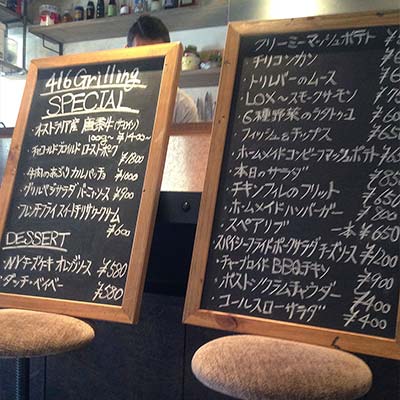 416 Grilling
SPECIAL
・オーストラリア産 厳選牛(サーロイン)
100g〜 ¥1400〜
・チャコールブロイルド ローストポーク
¥1800
・牛肉のあぶりカルパッチョ ¥1000
・グリルベジサラダ バーニャソース ¥900
・フレンチフライ スイートチリサワークリーム
¥600
DESSERT
・NYチーズケーキ オレンジソース ¥580
・ダッチ・ベイベー ¥580
クリーミーマッシュポテト
・チリコンカン
・トリレバーのムース
・LOX〜スモークサーモン
・6種野菜のラタトゥユ
・フィッシュ&チップス ¥650
・ホームメイドコンビーフマッシュポテト
・本日のサラダ ¥850
・チキンフィルのフリット ¥650
・ホームメイドハンバーガー ¥800
・スペアリブ 一本 ¥650
・スパイシーフライドポークサラダチーズソース ¥1200
・チャーブロイド BBQチキン ¥900
・ボストンクラムチャウダー ¥400
・コールスローサラダ ¥400